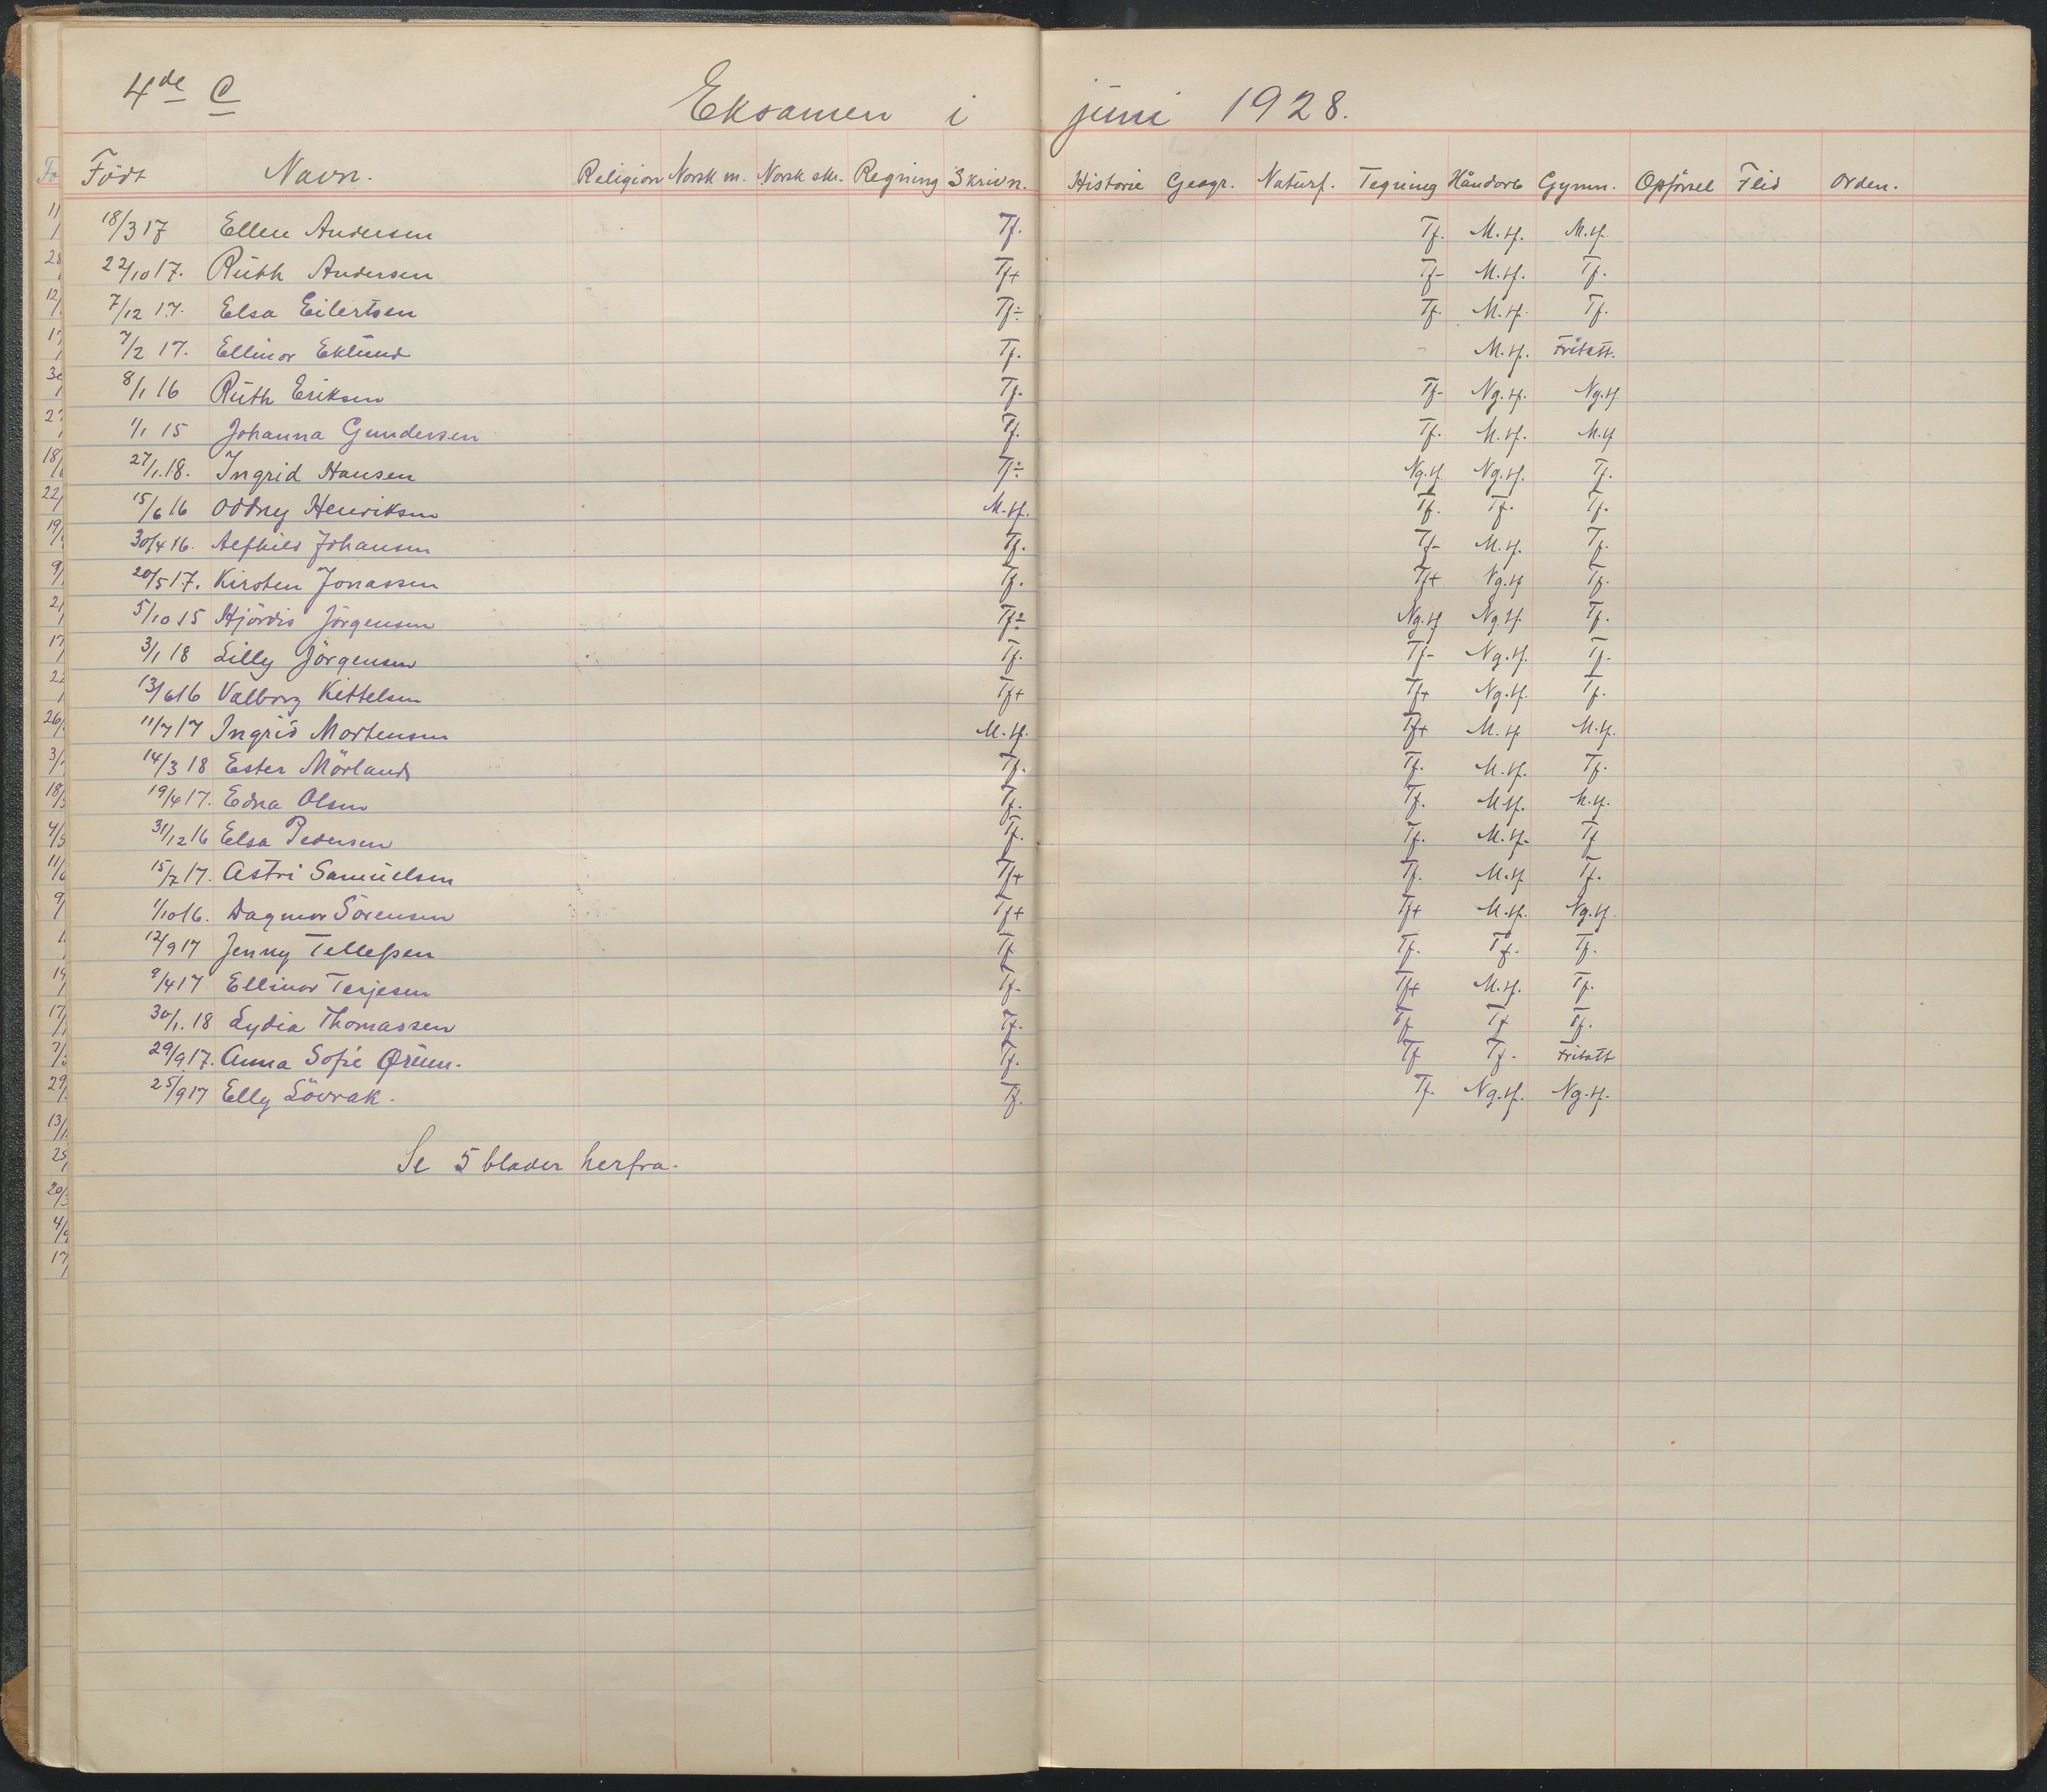 4de C Eksamen i juni 1928.
Födt Navn. Religion Norsk m. Norsk skr. Regning Skrivn. Historie Geogr. Naturf. Tegning Håndarb Gymn. Opførsel Flid Orden.
18/3 17 Ellen Andersen Tf. Tf. M.tf. M.tf.
22/10 17. Ruth Andersen Tf+ Tf- M.tf. Tf.
7/12 17. Elsa Eilertsen Tf÷ Tf. M.tf. Tf.
7/2 17. Ellinor Eklund Tf. - M.tf. Fritatt.
8/1 16 Ruth Eriksen Tf. Tf- Ng.tf. Ng.tf.
1/1 15 Johanna Gundersen Tf. Tf. M.tf. M.tf
27/1.18. Ingrid Hansen Tf÷ Ng.tf. Ng.tf. Tf.
15/6 16 Oddny Henriksen M.tf. Tf. Tf. Tf.
30/4 16. Alfhild Johansen Tf. Tf- M.tf. Tf.
20/5 17. Kirsten Jonassen Tf. Tf+ Ng.tf Tf.
5/10 15 Hjördis Jörgensen Tf÷ Ng.tf Ng.tf. Tf.
3/1 18 Lilly Jörgensen Tf. Tf- Ng.tf. Tf.
13/6 16 Valborg Kittelsen Tf+ Tf+ Ng.tf. Tf.
11/7 17 Ingrid Mortensen M.tf. Tf+ M.tf M.tf.
14/3 18 Ester Mörland Tf. Tf. M.tf. Tf.
19/4 17. Edna Olsen Tf. Tf. M.tf. M.tf.
31/12 16 Elsa Pedersen Tf. Tf. M.tf. Tf
15/7 17. Astri Samuelsen Tf+ Tf. M.tf Tf.
1/10 16. Dagmar Sörensen Tf+ Tf+ M.tf. Ng.tf.
12/9 17 Jenny Tellefsen Tf Tf. Tf. Tf.
9/4 17 Ellinor Terjesen Tf. Tf+ M.tf. Tf.
30/1. 18 Lydia Thomassen Tf. Tf Tf Tf.
29/9 17. Anna Sofie Tf. Tf Tf. Fritatt
25/9 17 Elly Lövrak. Tf. Tf. Ng.tf. Ng.tf.
Se 5 blader herfra.